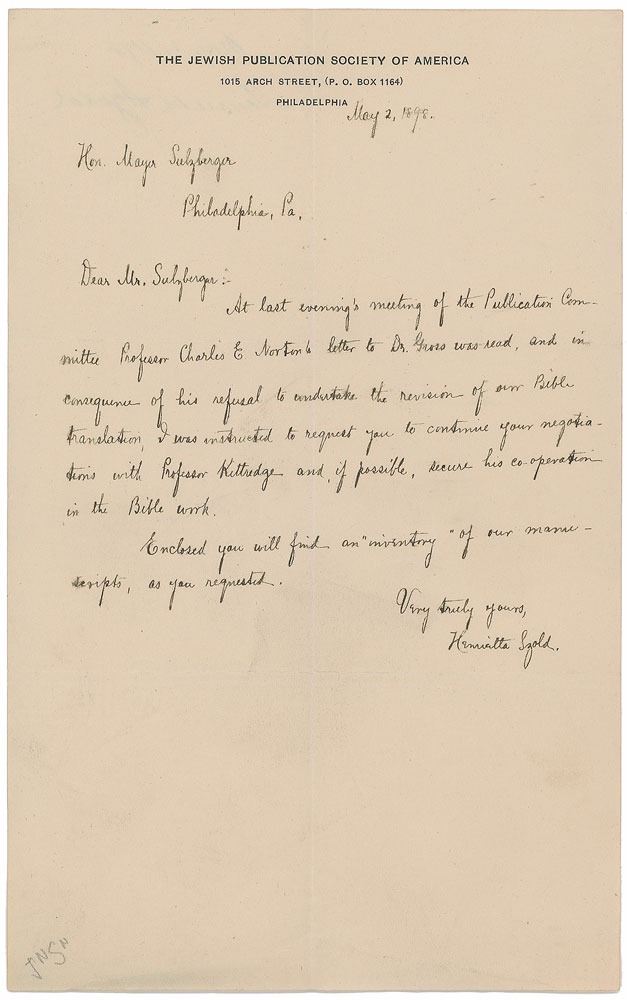 THE JEWISH PUBLICATION SOCIETY OF AMERICA
1015 ARCH STREET, (P. O. BOX 1164)
PHILADELPHIA
May 2, 1898.
Hon. Mayer Sulzberger
Philadelphia, Pa.
Dear Mr. Sulzberger:-
At last evening's meeting of the Publication Com-
mittee Professor Charles E Norton's letter to Dr. Gross was read, and in
consequence of his refusal to undertake the revision of our Bible
translation, I was instructed to request you to continue your negotia-
tions with Professor Kittredge and, if possible, secure his co-operation
in the Bible work.
Enclosed you will find an "inventory" of our manu-
scripts, as you requested.
Very truly yours,
Henrietta Szold.